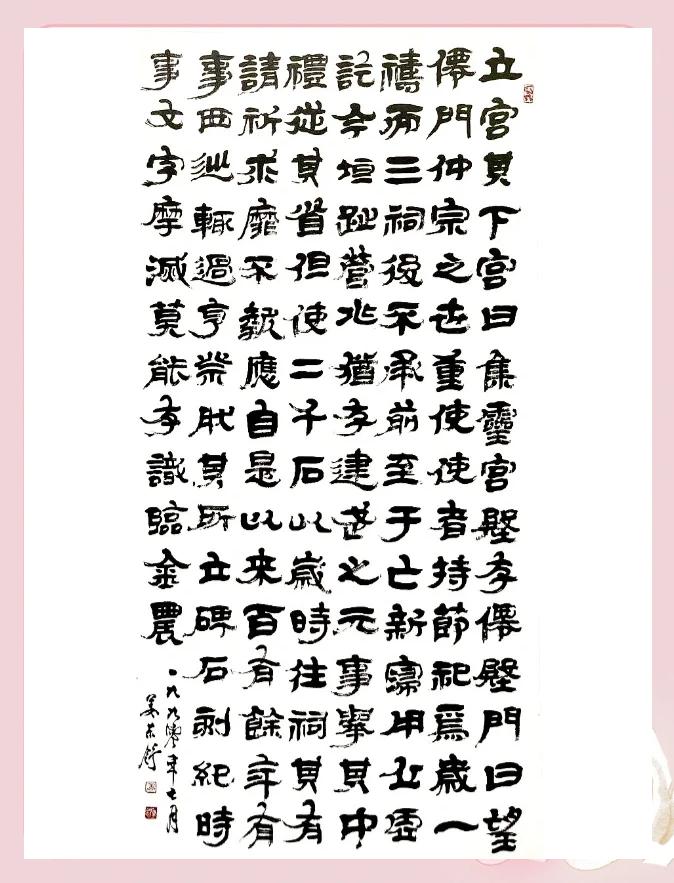 立宫其下宫曰集靈宫壂存僊壂門曰望
僊門仲宗之世重使使者持節祀爲歲一
禱而三祠後不承前至于亡新寖用丘虚
訖今垣趾營兆猶存建武之元事舉其中
禮從其省但使二千石以歲時往祠其有
請祈求靡不報應自是以来百有餘年有
事西巡輒過亨祭肰其所立碑石刻紀時
事文字摩滅莫能存識臨金農
一九九零年七月
姜东舒